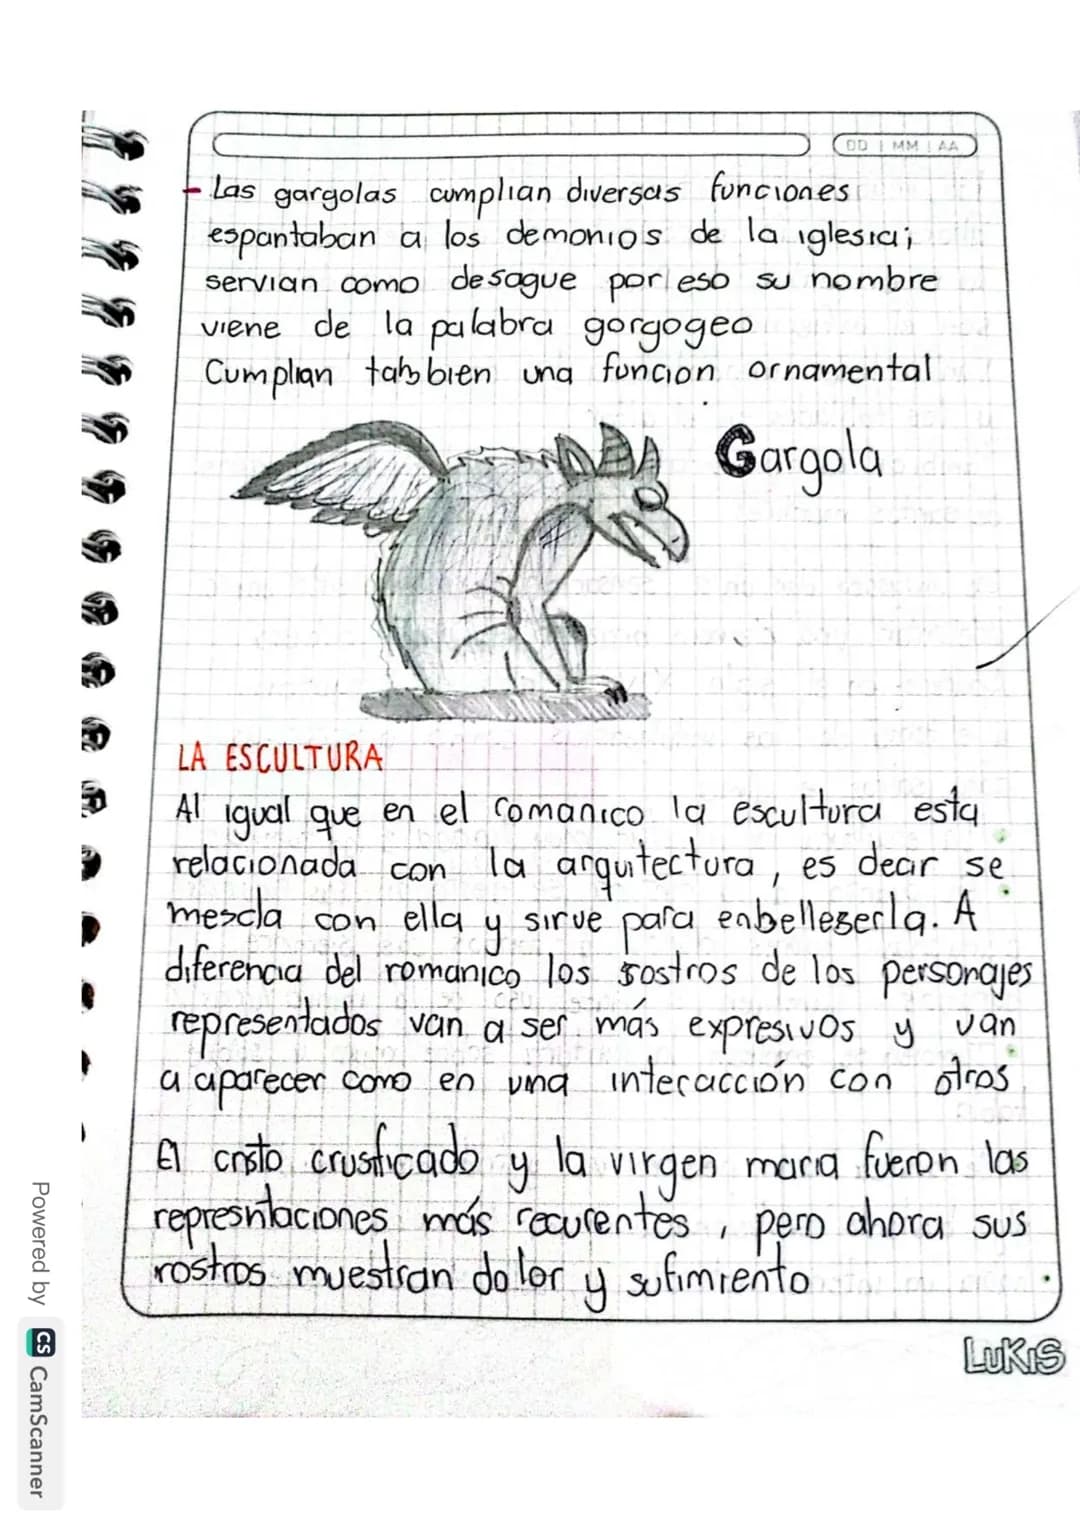 DD | MM | AA
- Las gargolas cumplian diversas funciones
espantaban a los demonios de la iglesia;
servian como desague por eso su nombre
viene de la palabra gorgogeo
Cumplian tabbien una funcion ornamental
Gargola
LA ESCULTURA
Al igual que en el romanico la escultura esta
relacionada con la arquitectura, es decir se
mezcla con ella y sirve para enbellezerla. A
diferencia del romanico los rostros de los personajes
representados van a ser más expresivos y van
a aparecer como en una interacción con otros
El cristo crusficado y la virgen maria fueron las
represntaciones más recurentes, pero ahora sus
rostros muestran dolor y sufimiento
LUKIS
Powered by CS CamScanner